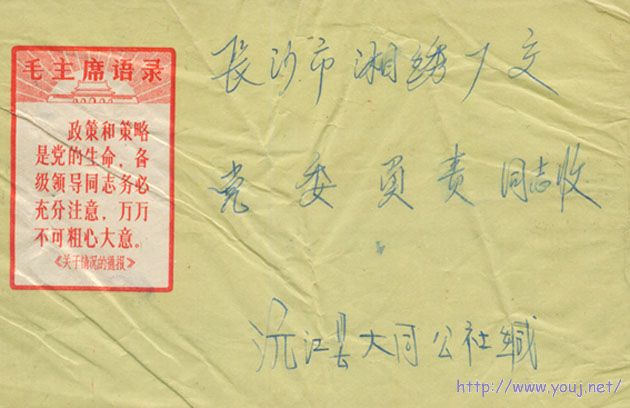 毛主席语录
政策和策略
是党的生命，各
级领导同志务必
充分注意，万万
不可粗心大意。
《关于情况的通报》
长沙市湘绣厂交
党委员责同志收
沅江县大同公社缄
http://www.youj.net/